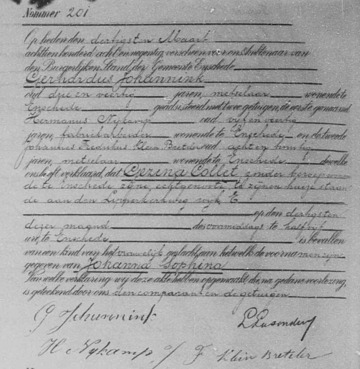 Nummer 201
Op heden den dertigsten Maart
achttien honderd acht en negentig, verscheen voor ons Ambtenaar van
den Burgerlijken Stand der Gemeente Enschede
Gerhardus Johannink
oud drie en veertig jaren, metselaar, wonende te
Enschede, geadsisteerd met twee getuigen, de eerste genaamd
Hermanus Nijkamp oud vijf en veertig
jaren, fabriekarbeider, wonende te Enschede en de tweede
Johannes Frederikus Klein Breteler oud acht en twintig
jaren, metselaar, wonende te Enschede
ons heeft verklaard, dat Gezina Collet, zonder beroep, wonen
de te Enschede, zijne echtgenoote, te zijnen huize staan
de aan den wijk E
op den dertigsten
dezer maand des voormiddags te half vijf
ure, te Enschede is bevallen
van een kind van het vrouwelijk geslacht, aan hetwelk de voornamen zijn
gegeven van Johanna Sophina
Van welke verklaring wij deze akte hebben opgemaakt, die, na gedane voorlezing,
is geteekend door ons, den comparant en de getuigen.
G Johannink
H. Nijkamp F Klein Breteler